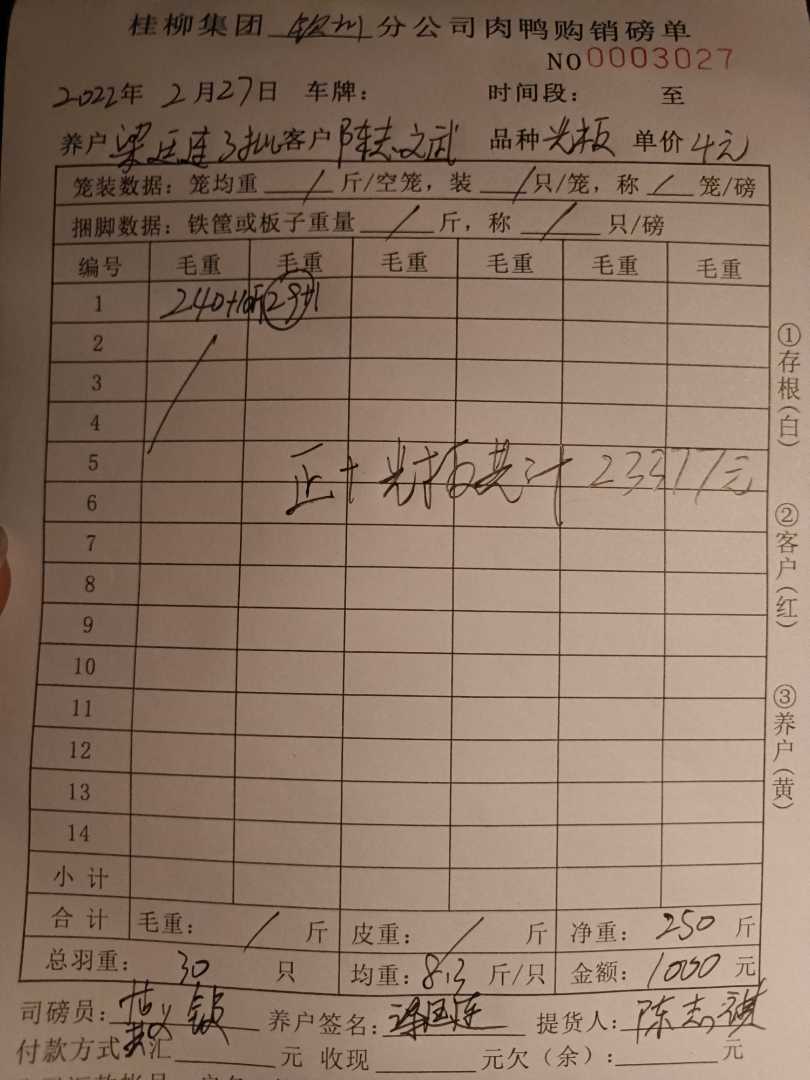 桂柳集团 钦州 分公司肉鸭购销磅单
NO 0003027
2022年 2月27日 车牌： 时间段： 至
养户 梁 客户 陈志武 品种 光板 单价 4元
笼装数据：笼均重 / 斤/空笼，装 / 只/笼，称 / 笼/磅
捆脚数据：铁筐或板子重量 / 斤，称 / 只/磅
编号 毛重 毛重 毛重 毛重 毛重 毛重
1 240+10斤 29+1
2
3
4
5
正+光板共计 23377元
6
7
8
9
10
11
12
13
14
小 计
合 计 毛重： / 斤 皮重： / 斤 净重： 250 斤
总羽重： 30 只 均重：8.3 斤/只 金额：1000 元
司磅员： 养户签名： 提货人：陈志
付款方式 汇 元 收现 元欠（余）： 元
①存根（白）
②客户（红）
③养户（黄）